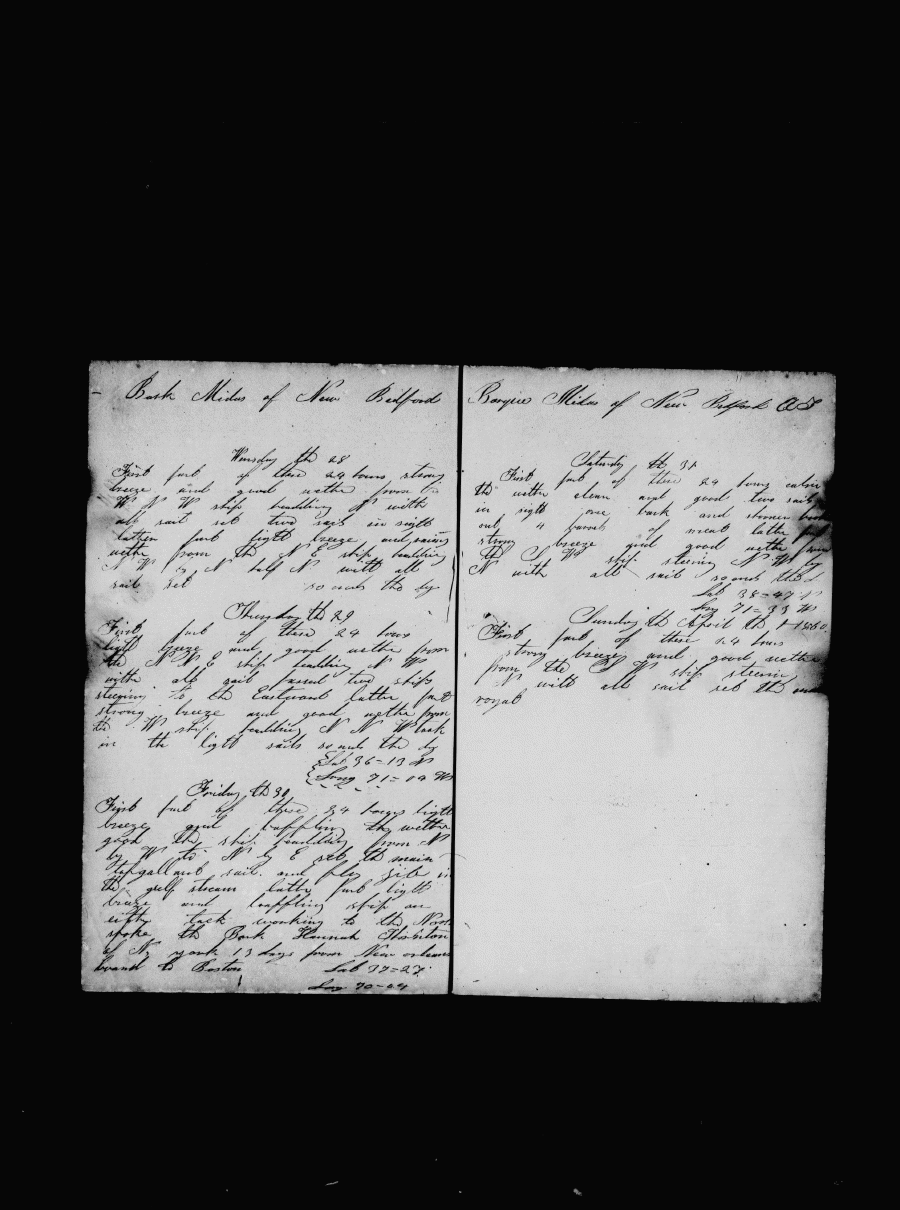 Bark Midas of New Bedford
Wensday th 28
First part of these 24 hours strong
breeze and good wether from
W N W ship heading N with
all sail set two sail in sight
latter part light breeze and
wether from the N E ship heading
N W by N half N with all
sail set so ends the dy
Thursday th 29
First part of these 24 hours
light breeze and good wether from
the N N E ship heading N W
withe all sail passed two ships
steering to the Eastward latter part
strong breeze and good wether from
the W ship heading N N W took
in the light sails so ends the dy
Lat 36=13 N
Long 71=09 W
Friday th 30
First part of these 24 hours light
breeze and baffling the wether
good the ship heading from N
by W to N by E set the main
topgallant sail and flying jib in
the gulf stream latter part light
breze and baffling ship on
eithe tack working to the North
spoke the Bark Hannah Thornton
of N york 13 days from New orleans
bound to Boston Lat 37=27
Long 70=24
Barque Midas of New Bedford
Saturday th 31
First part of these 24 hours calm
the wether clear and good two sails
in sight one bark and
out 4 barrels of meat latter part
strong breeze and good wether from
the S W ship steering N W by
N with all sail so ends the d
Lat 38=47 N
Long 71=33 W
Sunday th April th 1
First part of these 24 hours
strong breezes and good wether
from the S W ship steering
N with all sail set the main
royal